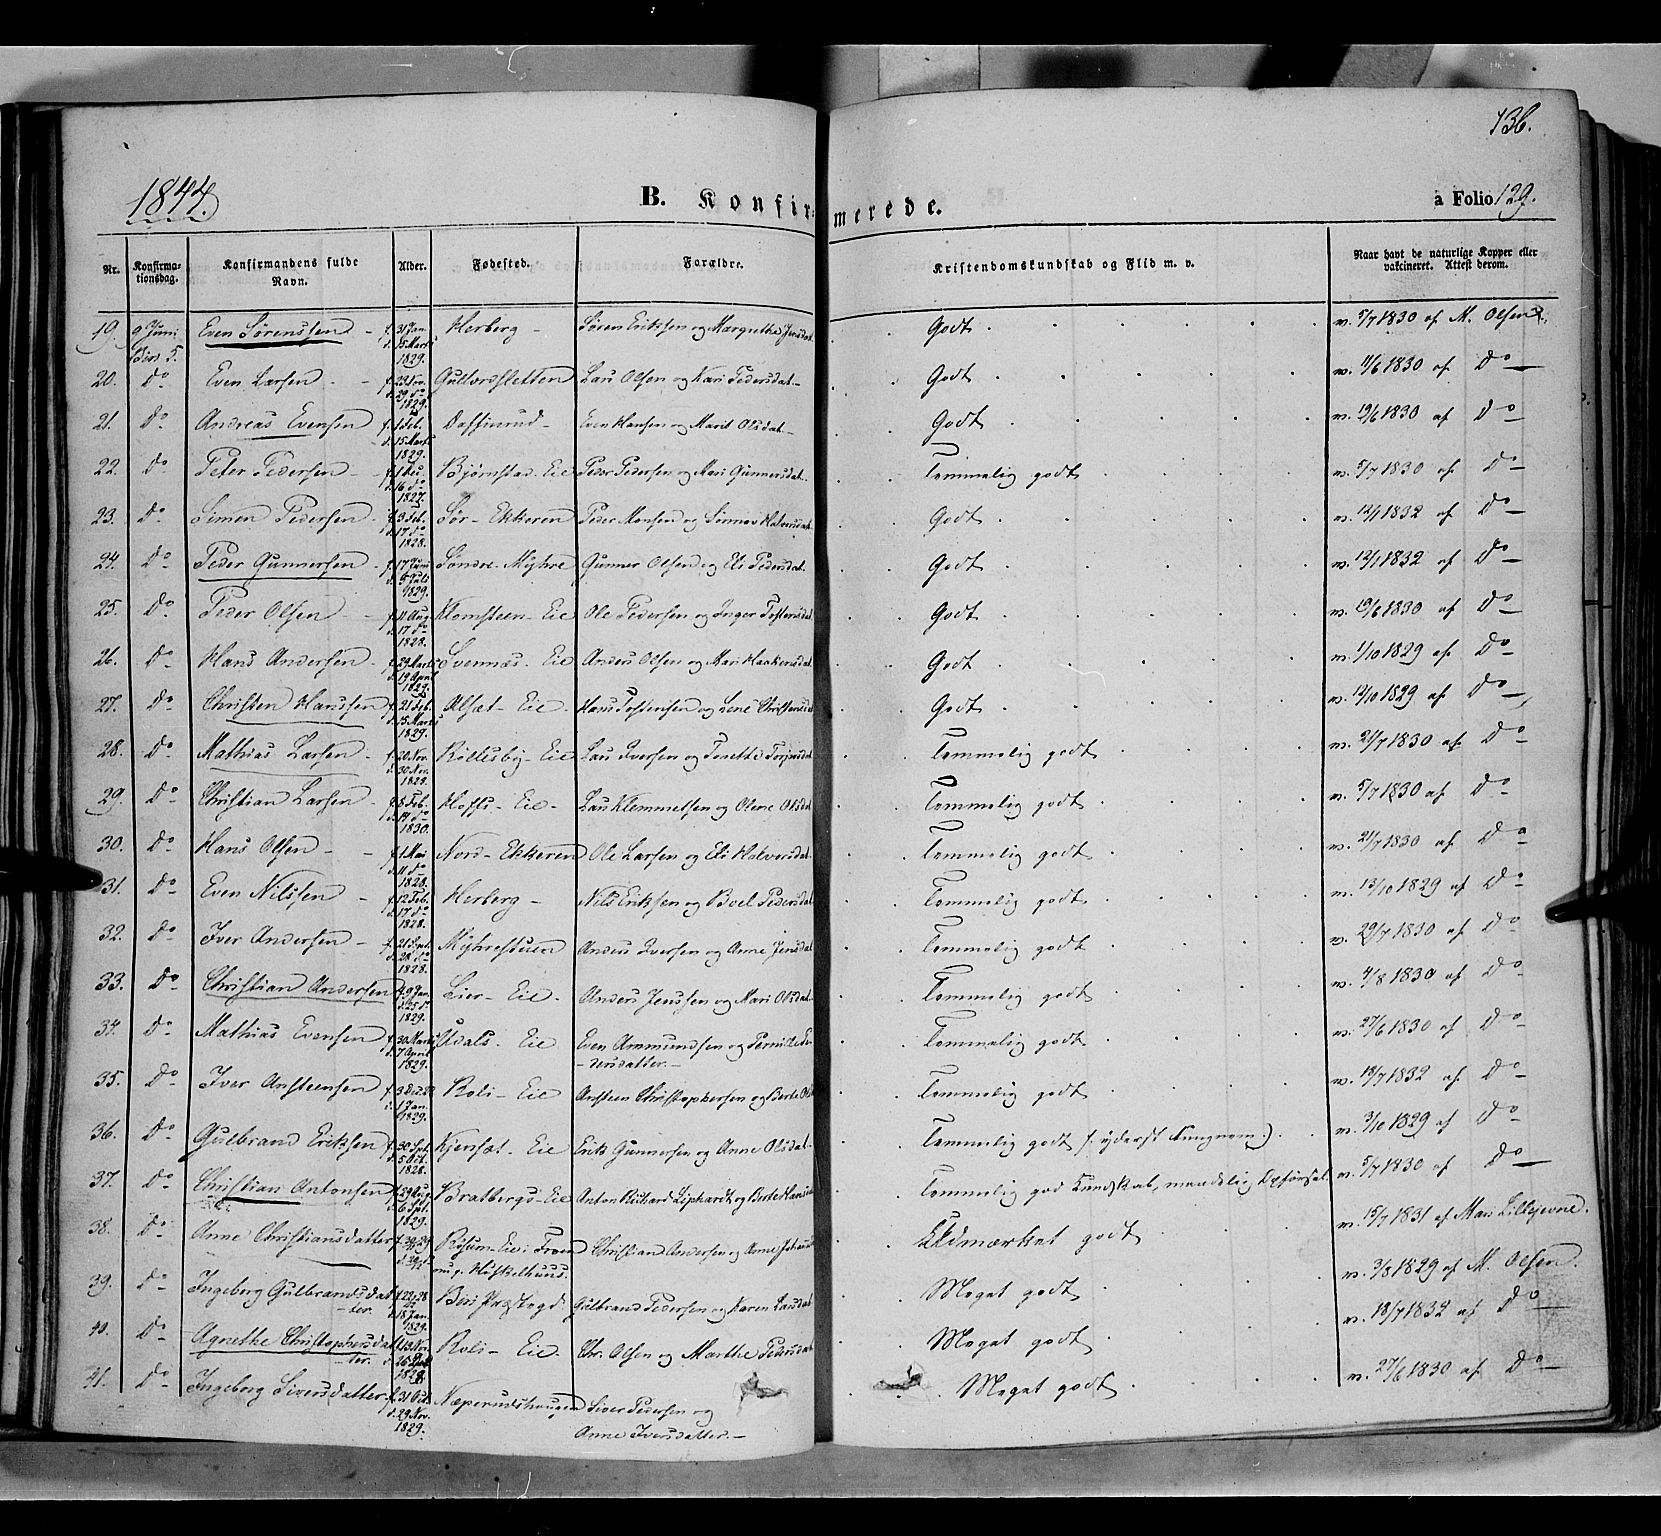 136.
1844.
B. Konfirmerede.
a Folio 129.
Nr. Konfirmationsdag. Konfirmandens fulde Navn. Alder. Fødested. Forældre. Kristendomskundskab og Flid m. v. Naar havt de naturlige Kopper eller vaktineret. Attest derom.
19. 9 Juni Even Sørenssen f. 31 Jan. d. 15 Marts 1829. Herberg Søren Eriksen og Margrethe Jensdat. Godt v. 5/7 1830 af M. Olsen.
20. Do Even Larsen 1829. Gulbordsletten Lars Olsen og Kari Pedersdat Godt 1830 af Do
21. Do Andreas Evensen f. 1 Feb. d. 15 Marts 1829. Daffinrud Even Hansen og Marit Olsdat Godt v. 19/6 1830 af Do
22. Do Peter Pedersen d. 16 do 1827. Bjørnstad Eie Peder Pedersen og Mari Gunnersdat. Temmelig godt v. 5/7 1830 af Do
23. Do Simen Pedersen f. 3 Feb. d. 17 do 1828. Sør-Ekkeren Peder Monsen og Halvorsdat. Godt v. 12/7 1832 af Do
24. Do Peder Gunnersen f. 17 Juni d. 5 Juli 1829. Søndre Myhre Gunner Olsen og Eli Pedersdat. Godt v. 12/7 1832 af Do
25. Do Peder Olsen f. 11 Aug. d. 17 do 1828. Klomsteen Eie Ole Pedersen og Inger Tostensdat. Godt v. 19/6 1830 af Do
26. Do Hans Andersen f. 29 Marts d. 19 April 1829. Svennæs Eie Anders Olsen og Mari Haakensdat Godt v. 1/10 1829 af Do
27. Do Christen Hansen f. 21 Feb. d. 15 Marts 1829. Alsæt Eie Hans Tostensen og Lene Christensdat Godt v. 12/10 1829 af Do
28. Do Mathias Larsen f. 20 Nov. d. 30 Nov. 1828. Røllesby Eie Lars Iversen og Torjersdat Temmelig godt v. 21/7 1830 af Do
29. Do Christian Larsen f. 8 Feb. 1830. Hoffs Eie Lars Klemmetsen og Olene Olsdat Temmelig godt v. 5/7 1830 af Do
30. Do Hans Olsen f. 1 Mai d. 11 do 1828. Nord-Ekkeren Ole Larsen og Eli Halvorsdat. Temmelig godt v. 21/7 1830 af Do
31. Do Even Nilssen f. 12 Feb. d. 17 do 1828. Herberg Nils Eriksen og Boel Pedersdat Temmelig godt v. 13/10 1829 af Do
32. Do Iver Andersen f. 21 Sept. d. 28 do 1828. Myhrestuen Anders Iversen og Anne Jensdat Temmelig godt v. 29/7 1830 af Do
33. Do Christian Andersen f. 9 Jan. d. 25 do 1829. Lier Eie Anders Jenssen og Mari Olsdat Temmelig godt v. 4/8 1830 af Do
34. Do Mathias Evensen f. 30 Marts d. 7 April 1829. Udals Eie Even Ammundsen og Pernille Pedersdatter. Temmelig godt v. 27/6 1830 af Do
35. Do Iver Ansteensen 1 Jan. 1829. Roli Eie Ansteen Christophersen og Berte Temmelig godt v. 18/7 1832 af Do
36. Do Gulbrand Eriksen f. 30 Sept. d. 5 Oct. 1828. Kjensæt Eie Erik Gunnersen og Anne Olsdat Temmelig godt (: yderst tungnem:) v. 3/10 1829 af Do
37. Do Christian Antonsen f. 29 Aug. d. 6 Sept. 1829. Bratbergs Eie Anton Richard Liphardt og Berte Temmelig god Kundskab, maadelig Opførsel. v. 5/7 1830 af Do
38. Do Anne Christiansdatter Røsum Eie i Fron Christian Andersen og Anne Udmærket godt v. 15/7 1831 af Mari Lillejevne.
39. Do Ingeborg Gulbrandsdatter 18 Jan. 1829. Biri Præstegd. Gulbrand Pedersen og Karen Larsdat Meget godt v. 3/8 1829 af M. Olsen.
40. Do Agnethe Christophersdatter 1828. Roli Eie Chr. Olsen og Marthe Pedersdat Meget godt v. 18/7 1832 af Do
41. Do Ingeborg Siversdatter f. 31 Oct. d. 29 Nov. 1829. Næperudshaugen Siver Pedersen og Anne Iversdatter. Meget godt v. 27/6 1830 af Do